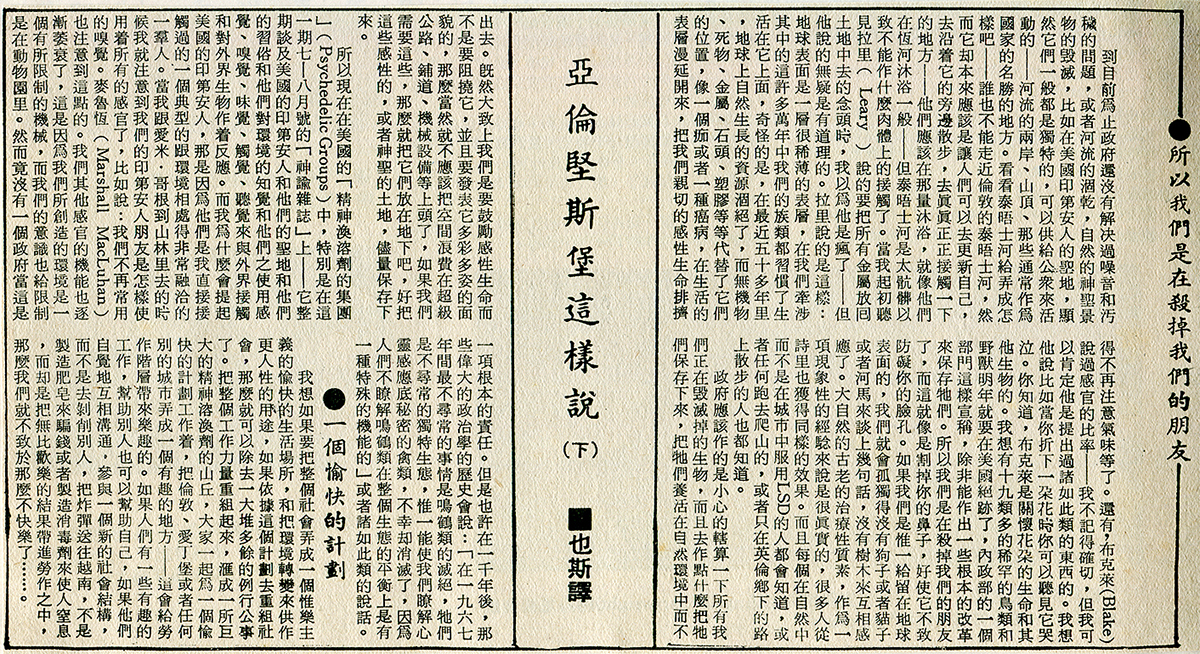 亞倫堅斯堡這樣說(下)
■也斯譯
●所以我們是在殺掉我們的朋友
到目前為止政府還沒有解决過噪音和汚
穢的問題，或者河流的涸乾，自然的神聖景
物的毀滅，比如在美國印第安人的聖地，顯
然它們一般都是獨特的，可以供給公衆來活
動的——河流的兩岸、山頂、那些通常作為
國家的名勝的地方。看看泰晤士河給弄成怎
樣吧——誰也不能走近倫敦的泰晤士河，然
而它却本來應該是讓人們可以去更新自己，
去沿着它的旁邊散步，去眞眞正正接觸一下
的地方——他們應該在那里沐浴，就像他們
在恆河沐浴一般——但泰晤士河是太骯髒以
致不能作什麼肉體上的接觸了。當我起初聽
見拉里（Leary）說的要把所有金屬放囘
土地中去的念頭時，我以為他是瘋了——但
他說的無疑是有道理的。拉里說的是這樣：
地球表面是一層很稀薄的表層，在我們牽涉
其中的這許多萬年中我們的族類都習慣了生
活在它上面，奇怪的是，在最近五十多年里
，地球上自然生長的資源涸絕了，而無機物
、死物、金屬、石頭、塑膠等等代替了它們
的位置，像一個痂或者一種癌病，在生活的
表層漫延開來，把我們親切的感性生命排擠
出去。旣然大致上我們是要鼓勵感性生命而
不是要阻撓它，並且要發表它多彩多姿的面
貌的，那麼當然就不應該把空間浪費在超級
公路、鋪道、機械設備等上頭了，如果我們
需要這些，那麼就把它們放在地下吧，好把
這些感性的，或者神聖的土地，儘量保存下
來。
所以現在在美國的「精神渙溶劑的集團
」（Psychedelic Groups）中，特別是在這
一期七——八月號的「神諭雜誌」上——它整
期談及美國的印第安人和他們的聖地和他們
的習俗和他們對環境的知覺和他們之使用感
覺、嗅覺、味覺、觸覺、聽覺來與外界接觸
和對外界生物作着反應。而我為什麼會提起
美國的印第安人，那是因為他們是我直接接
觸過的一個典型的跟環境相處得非常融洽的
一羣人。當我跟愛米·哥根到山林里去的時
候我就注意到我們的印第安人朋友是怎樣使
用着所有的感官了，比如說：我們不再常用
的嗅覺。麥魯恆（Marshall MacLuhan）
也注意到這點的。我們其他感官的機能也逐
漸萎衰了，這是因為我們所創造的環境是一
個有所限制的機械，而我們的意識也給限制
得不再注意氣味等了。還有，布克萊(Blake)
說過感官的比率——我不記得確切，但我可
以肯定他是提出過諸如此類的東西的。我想
他說比如當你折下一朶花時你可以聽見它哭
泣。你知道，布克萊是關懷花朶的生命和其
他生物的。我想有十九類多的稀罕的鳥類和
野獸明年就要在美國絕跡了，內政部的一個
部門這樣宣稱，除非能作出一些根本的改革
來保存牠們，所以我們是在殺掉我們的朋友
了，而這就像是割掉你的鼻子，好使它不致
防礙你的臉孔。如果我們是惟一給留在地球
表面的，我們就會孤獨得沒有狗子或者貓子
或者河馬來談上幾句話，沒有樹木來互相感
應了。大自然的古老的治療性質素，作為一
項現象性的經驗來說是很眞實的，很多人從
詩里也獲得同樣的效果。而且每個在自然中
而不是在城市中服用LSD的人都會知道，或
者任何跑去爬山的，或者只在英倫鄉下的路
上散步的人也都知道。
政府應該作的是小心的轄算一下所有我
們正在毀滅掉的生物，而且去作點什麼把牠
們保存下來，把牠們養活在自然環境中而不
是在動物園里。然而竟沒有一個政府當這是
一項根本的責任。但是也許在一千年後，那
些偉大的政治學的歷史會說：「在一九六七
年間最不尋常的事情是鳴鶴類的滅絕，牠們
是不尋常的獨特生態，惟一能使我們瞭解心
靈感應底秘密的禽類，不幸却消滅了，因為
人們不瞭解鳴鶴類在整個生態的平衡上是有
一種特殊的機能的」或者諸如此類的說話。
●一個愉快的計劃
我想如果要把整個社會弄成一個惟樂主
義的愉快的生活場所，和把環境轉變來供作
更人性的用途，如果依據這個計劃去重組社
會，那麼就可以除去一大堆多餘的例行公事
了。把整個工作力量重組起來，滙成一所巨
大的精神溶渙劑的山丘，大家一起為一個愉
快的計劃工作着，把倫敦、愛丁堡或者任何
別的城市弄成一個有趣的地方——這會給勞
作階層帶來樂趣的。如果人們有一些有趣的
工作，幫助別人也可以幫助自己，如果他們
自覺地互相溝通，參與一個新的社會結構，
而不是去剝削別人，把炸彈送往越南，不是
製造肥皂來騙錢或者製造消毒劑來使人窒息
，而却是把無比歡樂的結果帶進勞作之中，
那麼我們就不致於那麼不快樂了……。